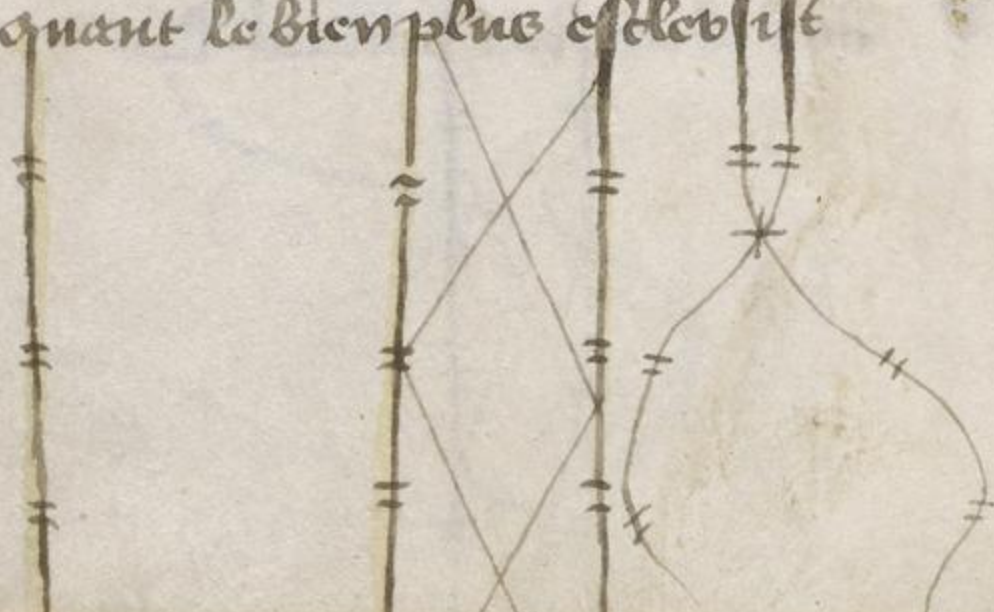 quant le bien plus esclersist